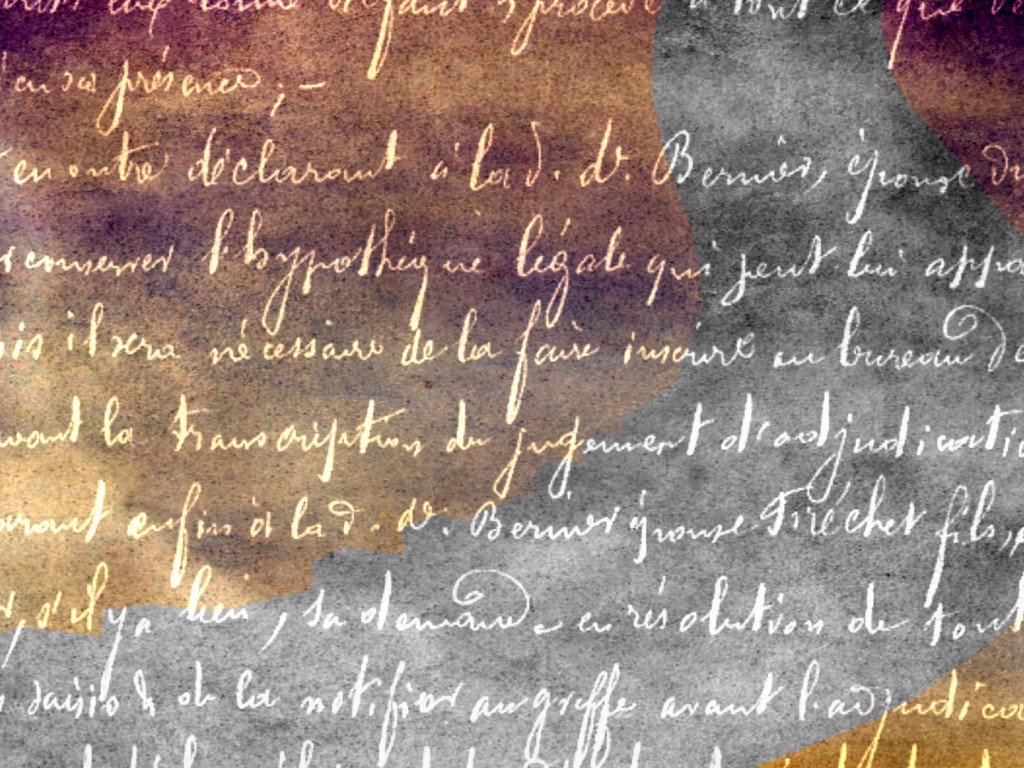 défaut d'procédé à tout ce que
en sa présence ; –
en outre déclarant à la d. de. Bernier, épouse
conserver l'hypothéque légale qui peut lui
il sera nécessaire de la faire inscrire au bureau
la transcription du jugement d'adjudicatio
enfin à la d. de. Bernier épouse Fréchet fils,
s'il y a lieu, sa demande en résolution de tout
saisis & de la notifier au greffe avant l'adjudica